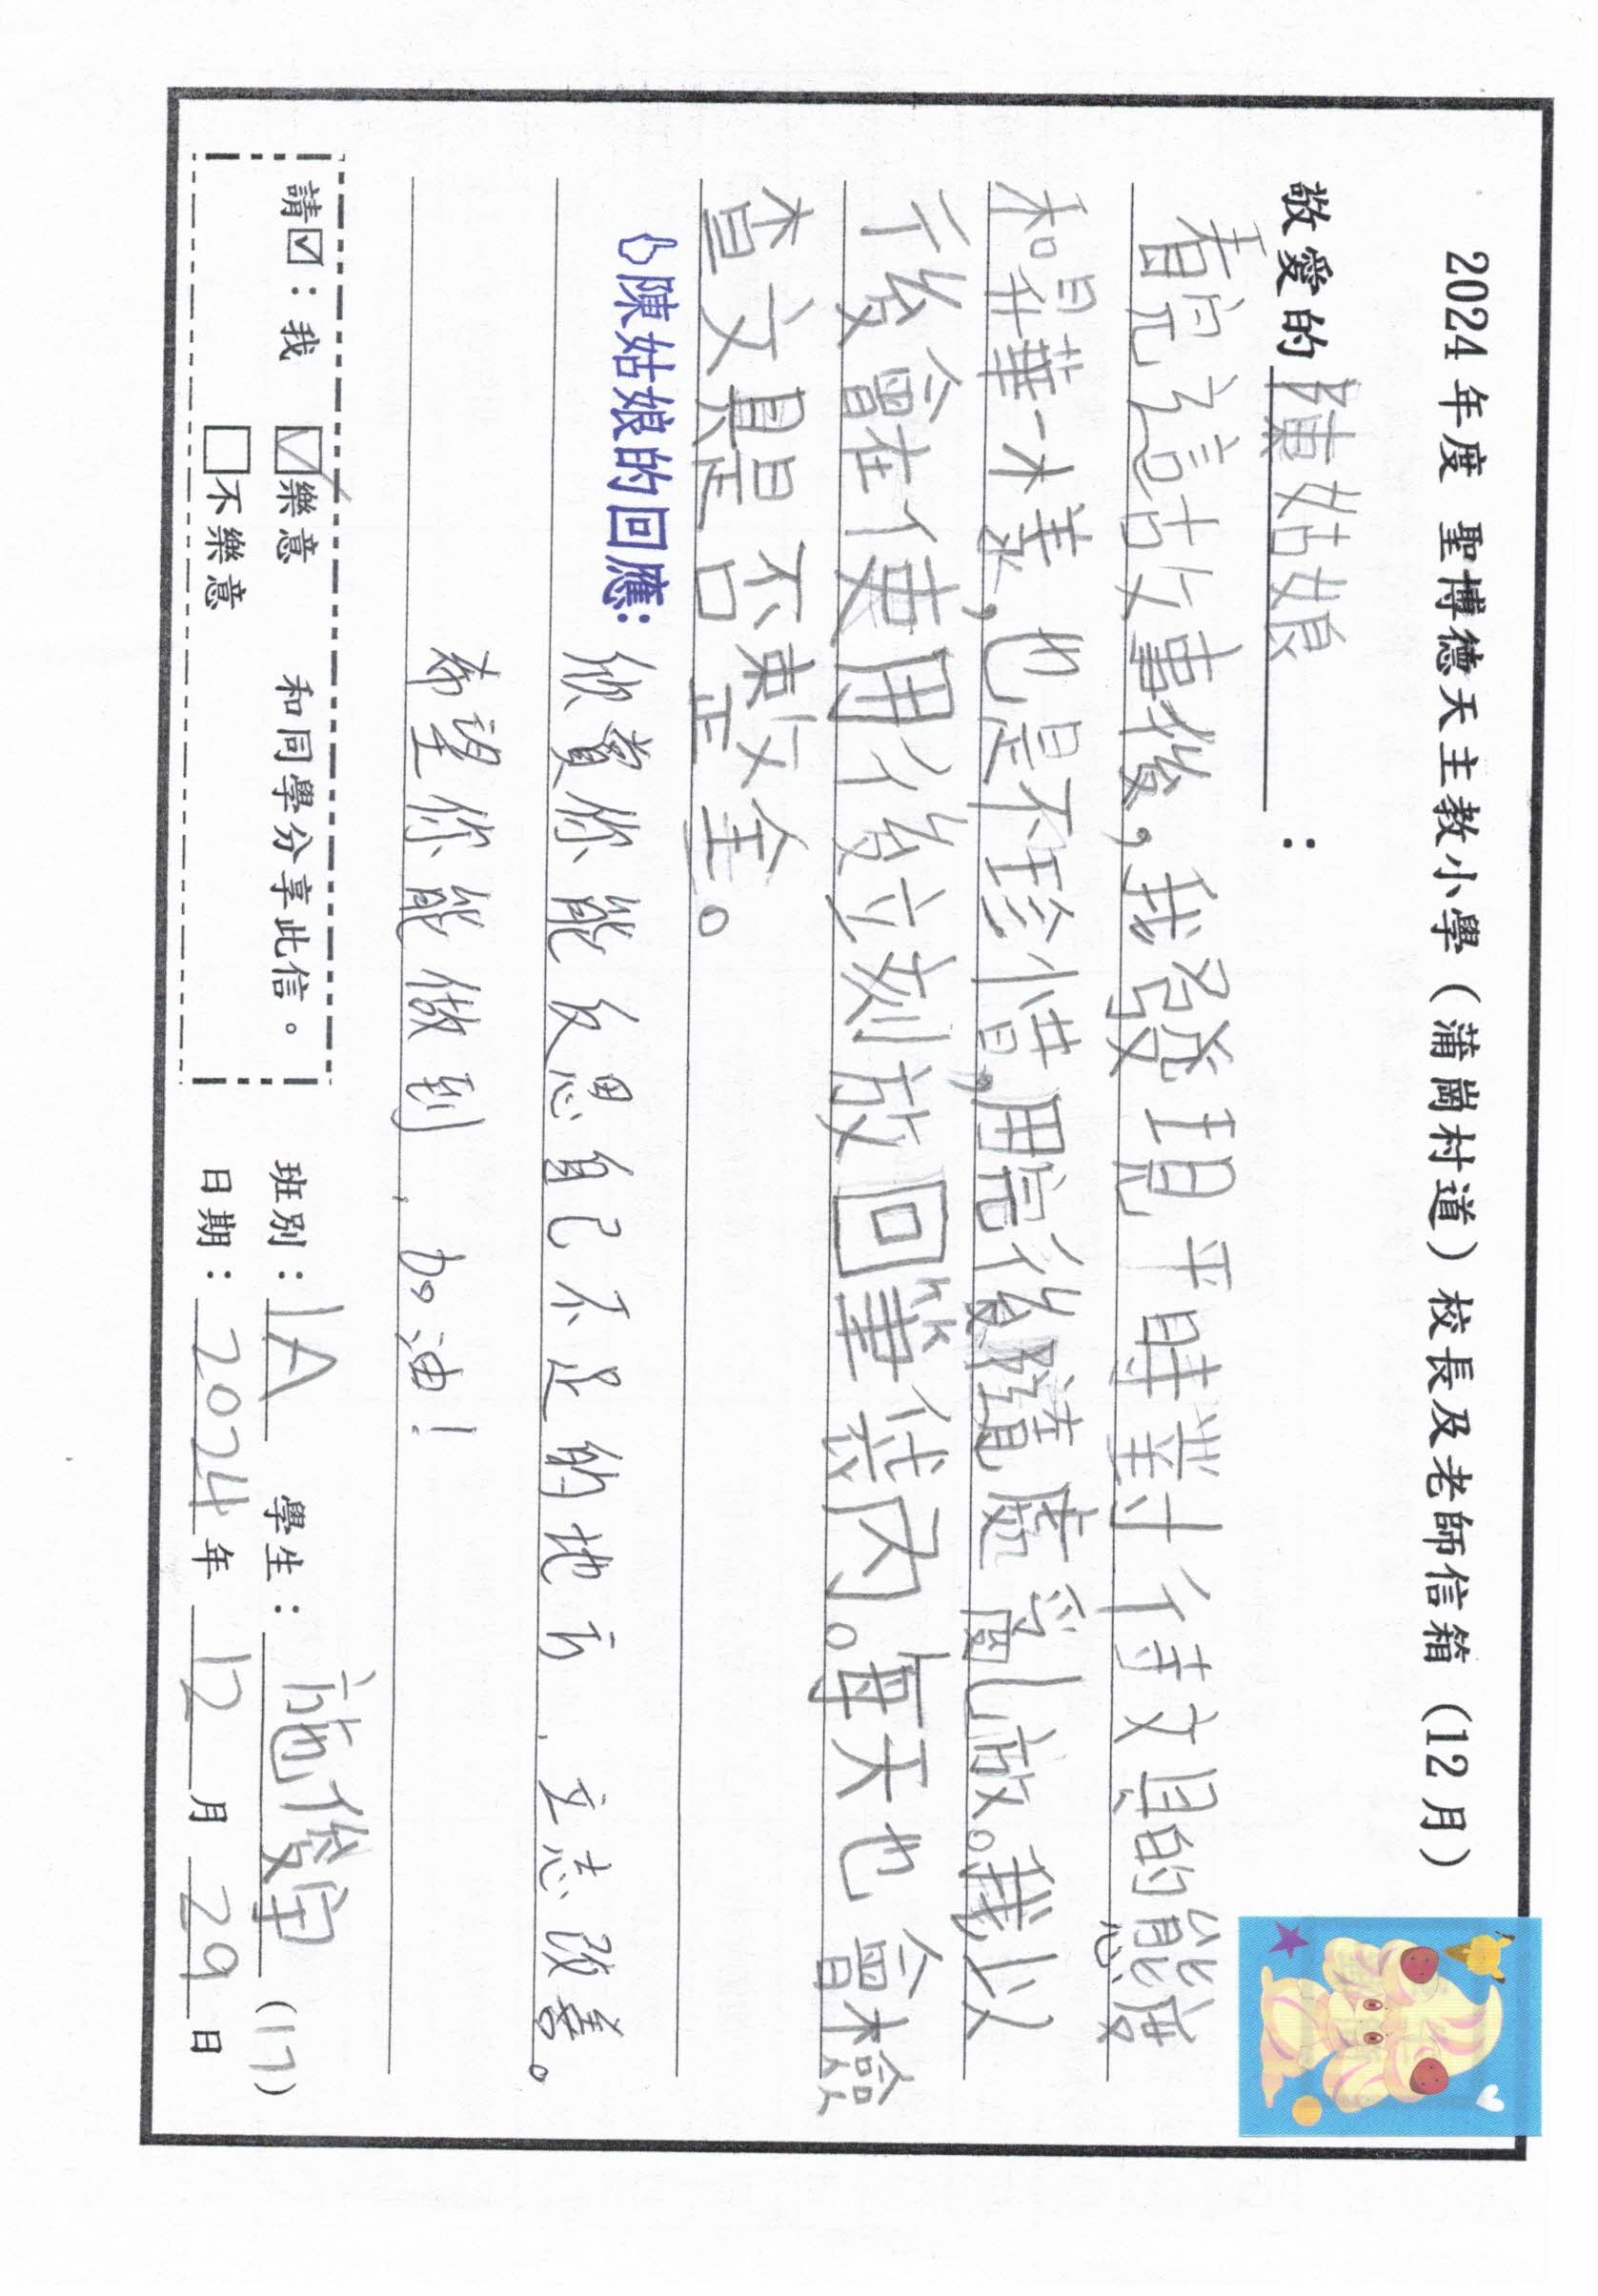 2024 年度 聖博德天主教小學（蒲崗村道）校長及老師信箱（12 月）
敬愛的陳姑娘：
看完這故事後，我發現平時對待文具的態度
和昇華一樣，也是不珍惜，用完後隨處亂放。我以
後會在使用後立刻放回筆袋內。每天也會檢
查文具是否整全。
陳姑娘的回應：
欣賞你能反思自己不足的地方，立志改善。
希望你能做到，加油！
請☑：我 ☑樂意 和同學分享此信。
□不樂意
班別：1A 學生：施俊宇 (17)
日期：2024年12月29日